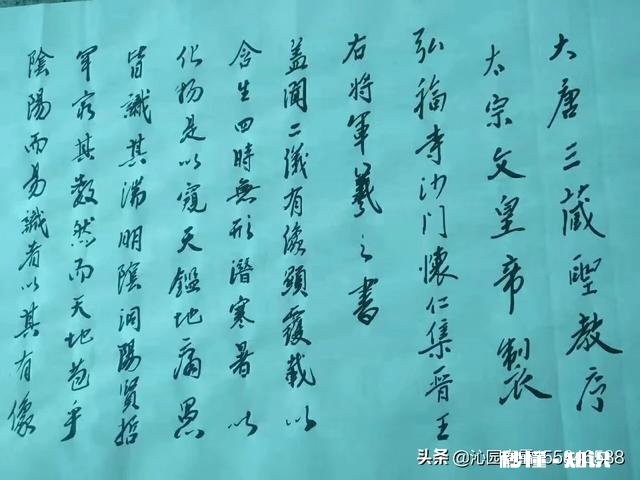 大唐三藏聖教序
太宗文皇帝製
弘福寺沙门懷仁集晉王
右将軍羲之書
盖聞二儀有像顯覆載以
含生四時無形潛寒暑以
化物是以窺天鑑地庸愚
皆識其端明陰洞陽賢哲
罕窮其數然而天地苞乎
陰陽而易識者以其有像
头条 @沁园
秒懂 知识